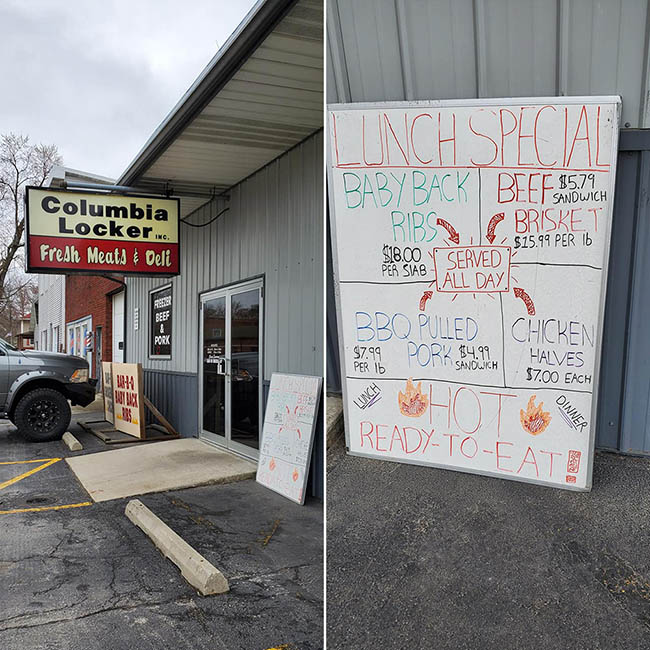 Columbia
Locker INC.
Fresh Meats & Deli
FREEZER
BEEF
&
PORK
BAR-B-Q
BABY BACK
RIBS
LUNCH SPECIAL
BABY BACK
RIBS
$18.00
PER SLAB
BEEF $5.79
SANDWICH
BRISKET
$15.99 PER lb
SERVED
ALL DAY
BBQ PULLED
PORK
$7.99
PER lb
$4.99
SANDWICH
CHICKEN
HALVES
$7.00 EACH
LUNCH
HOT
DINNER
READY-TO-EAT